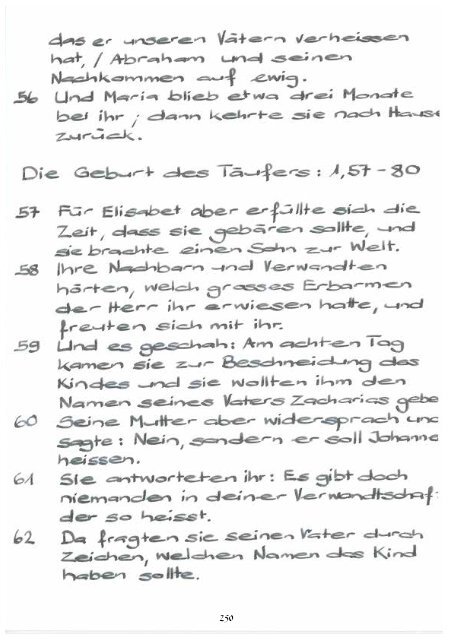 das er unseren Vätern verheissen
hat, / Abraham und seinen
Nachkommen auf ewig.
56 Und Maria blieb etwa drei Monate
bei ihr; dann kehrte sie nach Hause
zurück.
Die Geburt des Täufers: 1,57-80
57 Für Elisabet aber erfüllte sich die
Zeit, dass sie gebären sollte, und
sie brachte einen Sohn zur Welt.
58 Ihre Nachbarn und Verwandten
hörten, welch grosses Erbarmen
der Herr ihr erwiesen hatte, und
freuten sich mit ihr.
59 Und es geschah: Am achten Tag
kamen sie zur Beschneidung des
Kindes und sie wollten ihm den
Namen seines Vaters Zacharias gebe
60 Seine Mutter aber widersprach und
sagte: Nein, sondern er soll Johanne
heissen.
61 Sie antworteten ihr: Es gibt doch
niemanden in deiner Verwandtschaf
der so heisst.
62 Da fragten sie seinen Vater durch
Zeichen, welchen Namen das Kind
haben sollte.
250